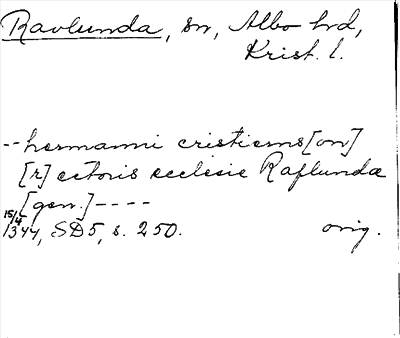 Ravlunda, sn, Albo hrd,
Krist. l.
--hermanni cristierns[on]
[r]ectoris ecclesie Raflundæ
[gen.]----
15/4 1344, SD5, s. 250. orig.